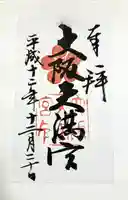 奉拝
大阪天満宮
平成十二年十二月二十日